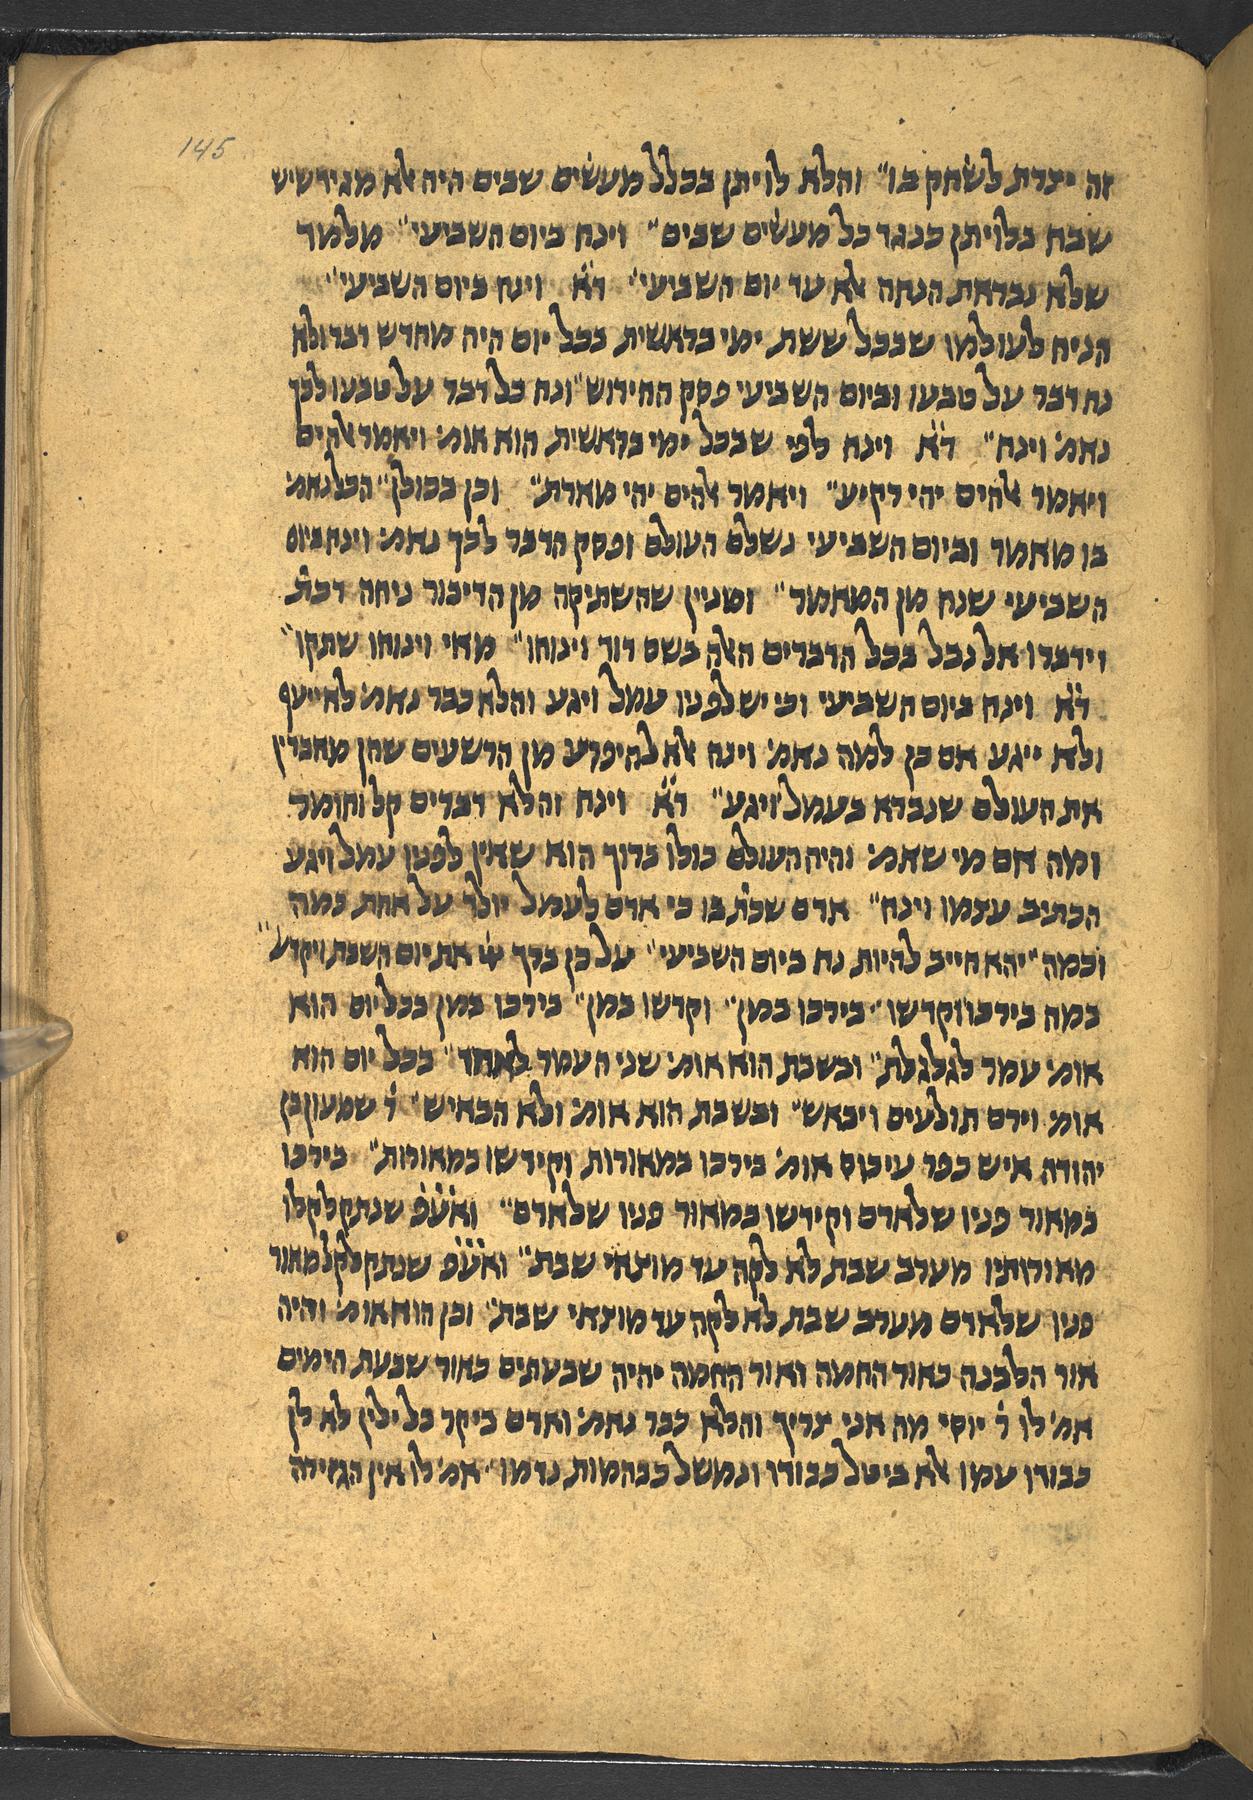 145
זה יצרת לשחק בו״ והלא לויתן בכלל מעשים שבים היה אלא מגיד שיש
שבח בלויתן כנגד כל מעשים שבים״ וינח ביום השביעי״ מלמד
שלא נבראת הנחה אלא עד יום השביעי״ ד״א וינח ביום השביעי״
הניח לעולמו שבכל ששת ימי בראשית בכל יום היה מחדש דבר ולא
נח דבר על טבעו וביום השביעי פסק החידוש״ ונח כל דבר על טבעו לכך
נאמ׳ וינח״ ד״א וינח לפי שבכל ימי בראשית הוא אומ׳ ויאמר אלהים
ויאמר אלהים יהי רקיע״ ויאמר אלהים יהי מארת״ וכן בכולן״ הכל נאמ׳
בו מאמר וביום השביעי נשלם העולם ופסק הדבר לכך נאמ׳ וינח ביום
השביעי שנח מן המאמר״ ומניין שהשתיקה מן הדיבור ניחה דכת׳
וידברו אל נבל בכל הדברים האלה בשם דוד וינוחו״ מאי וינוחו שתקו״
ד״א וינח ביום השביעי וכי יש לפניו עמל ויגע והלא כבר נאמ׳ לא ייעף
ולא ייגע אם כן למה נאמ׳ וינח אלא להיפרע מן הרשעים שהן מאבדין
את העולם שנברא בעמל ויגע״ ד״א וינח והלא דברים קל וחומר
ומה אם מי שאמ׳ והיה העולם כולו ברוך הוא שאין לפניו עמל ויגע
הכתיב עצמו וינח״ אדם שכת׳ בו כי אדם לעמל יולד על אחת כמה
וכמה״ יהא חייב להיות נח ביום השביעי״ על כן ברך ייי את יום השבת ויקדש״
במה בירכו וקדשו״ בירכו במן״ וקדשו במן״ בירכו במן בכל יום הוא
אומ׳ עמר לגלגלת״ ובשבת הוא אומ׳ שני העמר לאחד״ בכל יום הוא
אומ׳ וירם תולעים ויבאש״ ובשבת הוא אומ׳ ולא הבאיש״ ר׳ שמעון בן
יהודה איש כפר עיכוס אומ׳ בירכו במאורות וקידשו במאורות״ בירכו
במאור פניו שלאדם וקידשו במאור פניו שלאדם״ ואע״פ שנתקלקלו
מאורותיו מערב שבת לא לקה עד מוצאי שבת״ ואע״פ שנתקלקל מאור
פניו שלאדם מערב שבת לא לקה עד מוצאי שבת״ וכן הוא אומ׳ והיה
אור הלבנה כאור החמה ואור החמה יהיה שבעתים כאור שבעת הימים
אמ׳ לו ר׳ יוסי מה אני צריך והלא כבר נאמ׳ ואדם ביקר בל ילין לא לן
כבודו עמו אלא ביטל כבודו ונמשל כבהמות נדמו״ אמ׳ לו אין הגזירה